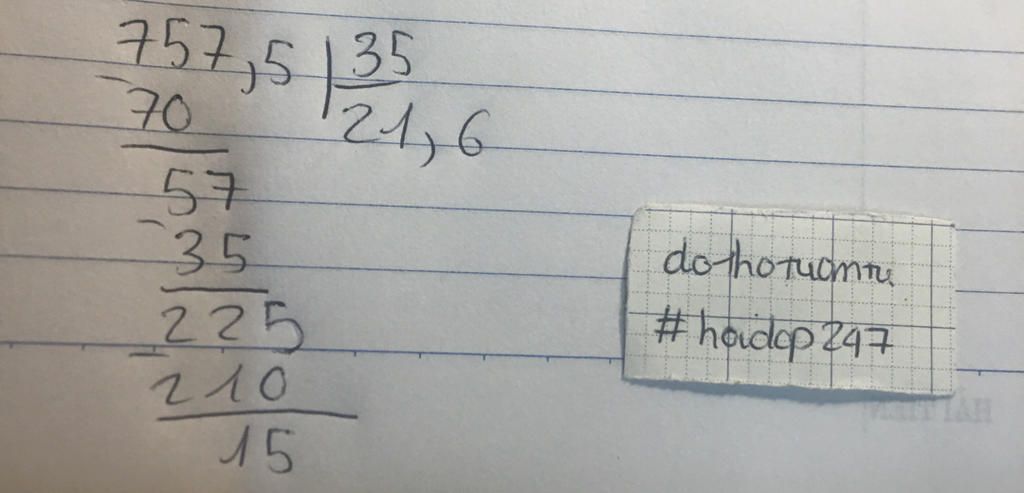 757,5 35
- 70 21,6
57
- 35
225
- 210
15
#hoidap247
HẢI TIẾN